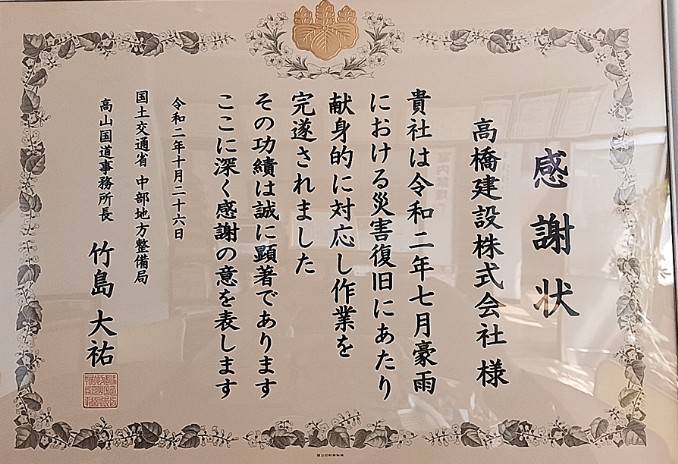 感謝状
高橋建設株式会社 様
貴社は令和二年七月豪雨
における災害復旧にあたり
献身的に対応し作業を
完遂されました
その功績は誠に顕著であります
ここに深く感謝の意を表します
令和二年十月二十六日
国土交通省 中部地方整備局
高山国道事務所長 竹島 大祐